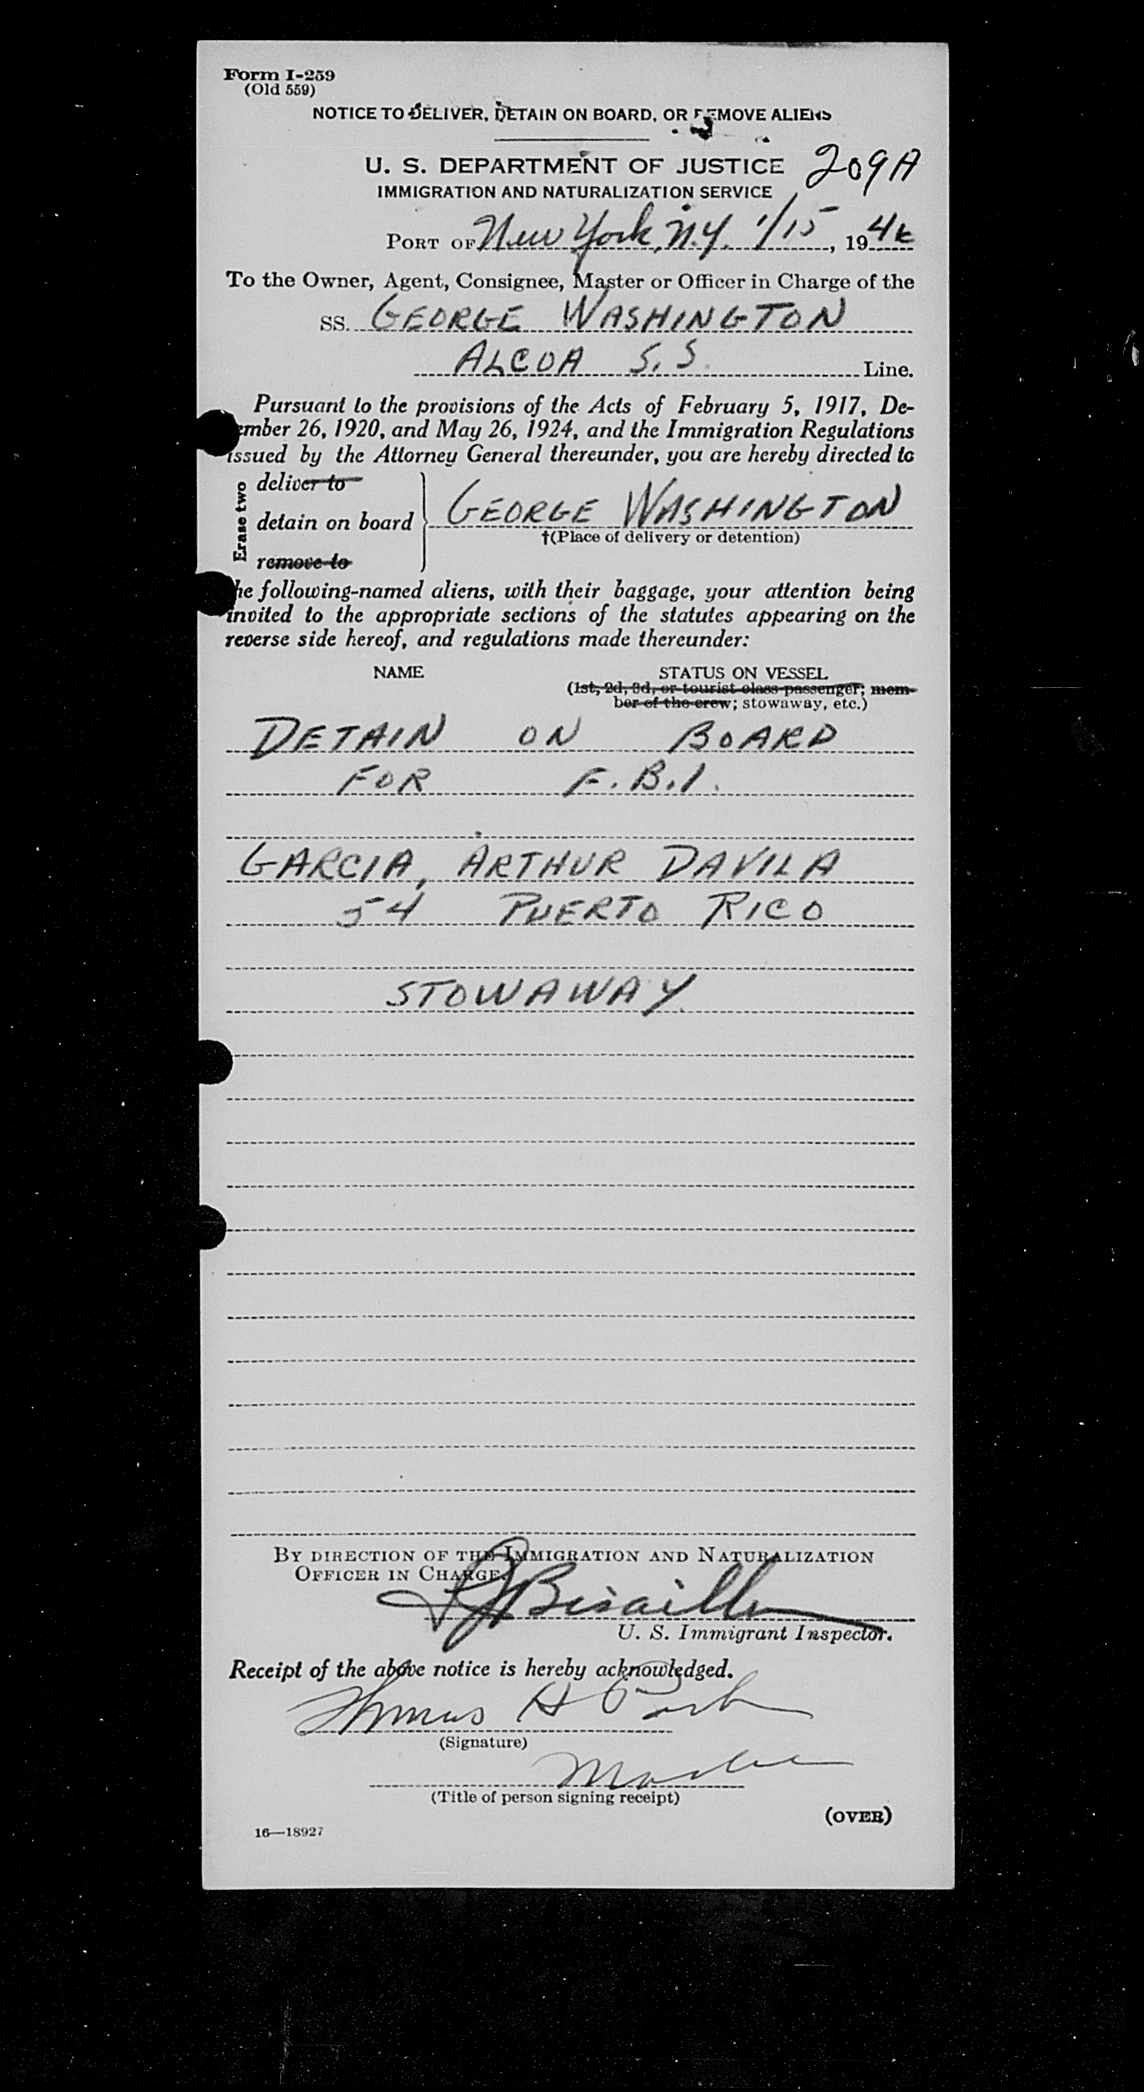 Form I-259
(Old 559)
NOTICE TO DELIVER, DETAIN ON BOARD, OR REMOVE ALIENS
U. S. DEPARTMENT OF JUSTICE 209A
IMMIGRATION AND NATURALIZATION SERVICE
PORT OF New York, N.Y. 1/15, 194
To the Owner, Agent, Consignee, Master or Officer in Charge of the
SS. GEORGE WASHINGTON
ALCOA S.S. Line.
Pursuant to the provisions of the Acts of February 5, 1917, De-
cember 26, 1920, and May 26, 1924, and the Immigration Regulations
issued by the Attorney General thereunder, you are hereby directed to
Erase two
deliver to
detain on board GEORGE WASHINGTON
†(Place of delivery or detention)
remove to
the following-named aliens, with their baggage, your attention being
invited to the appropriate sections of the statutes appearing on the
reverse side hereof, and regulations made thereunder:
NAME STATUS ON VESSEL
(1st, 2d, 3d, or tourist class passenger; mem-
ber of the crew; stowaway, etc.)
DETAIN ON BOARD
FOR F.B.I.
GARCIA, ARTHUR DAVILA
54 PUERTO RICO
STOWAWAY
BY DIRECTION OF THE IMMIGRATION AND NATURALIZATION
OFFICER IN CHARGE
U. S. Immigrant Inspector.
Receipt of the above notice is hereby acknowledged.
Thomas H
(Signature)
Master
(Title of person signing receipt)
(OVER)
16—18927